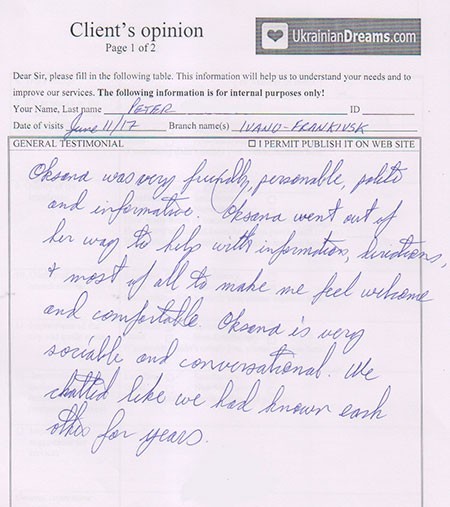 Client's opinion
Page 1 of 2
UkrainianDreams.com
Dear Sir, please fill in the following table. This information will help us to understand your needs and to
improve our services. The following information is for internal purposes only!
Your Name, Last name PETER ID
Date of visits June 11/17 Branch name(s) IVANO-FRANKIVSK
GENERAL TESTIMONIAL ☐ I PERMIT PUBLISH IT ON WEB SITE
Oksana was very friendly, personable, polite
and informative. Oksana went out of
her way to help with information, directions,
+ most of all to make me feel welcome
and comfortable. Oksana is very
sociable and conversational. We
chatted like we had known each
other for years.